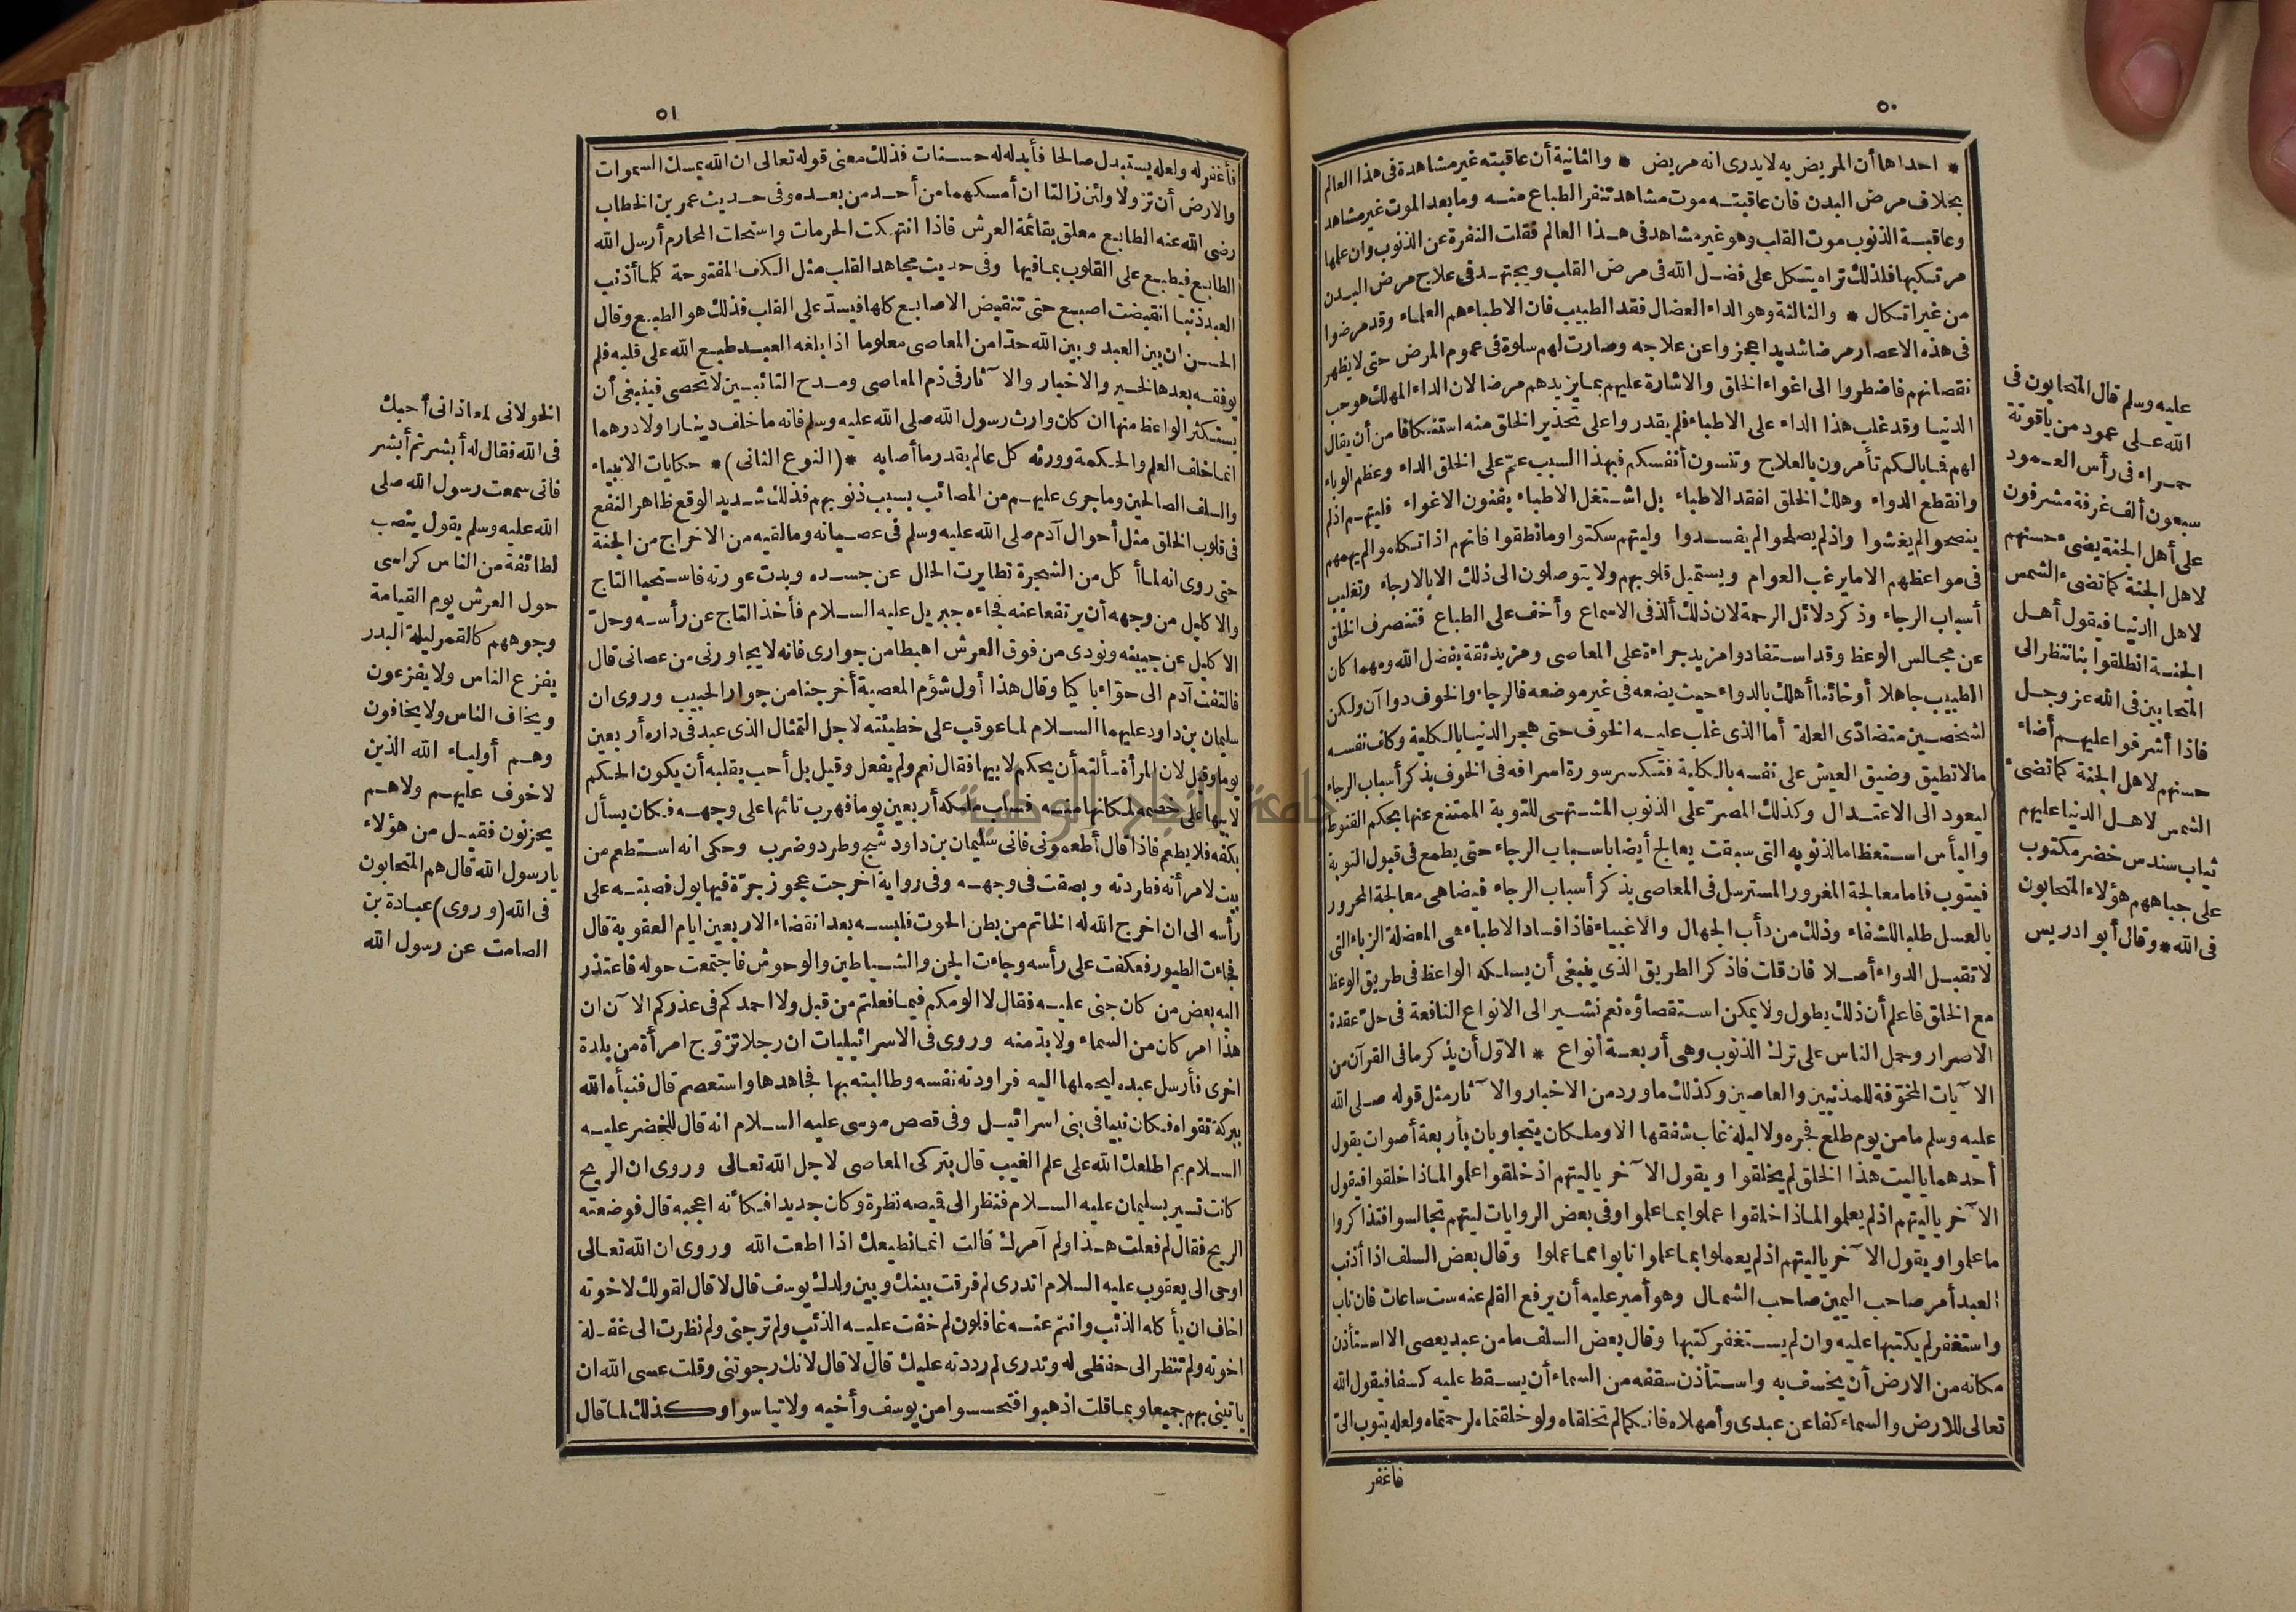 ٥٠
* احداها أن المريض به لا يدرى انه مريض * والثانية أن عاقبته غير مشاهدة فى هذا العالم
بخلاف مرض البدن فان عاقبتـه موت مشاهد تنفر الطباع منـه وما بعد الموت غير مشاهد
وعاقبـة الذنوب موت القلب وهو غير مشاهد فى هـذا العالم فقلت النفرة عن الذنوب وان علمها
مرتكبها فلذلك تراه يتكل على فضـل الله فى مرض القلب ويجتهـد فى علاج مرض البـدن
من غير اتكال * والثالثة وهو الداء العضال فقد الطبيب فان الاطباء هم العلماء وقد مرضوا
فى هذه الاعصار مرضا شديدا عجزوا عن علاجه وصارت لهم سلوة فى عموم المرض حتى لا يظهر
نقصانهم فاضطروا الى اغواء الخلق والاشارة عليهم بما يزيدهم مرضا لان الداء المهلك هو حب
الدنيا وقد غلب هذا الداء على الاطباء فلم يقدروا على تحذير الخلق منه استنكافا من أن يقال
لهم فما بالكم تأمرون بالعلاج وتنسون أنفسكم فبهذا السبب عمّ على الخلق الداء وعظم الوباء
وانقطع الدواء وهلك الخلق لفقد الاطباء بل اشـتغل الاطباء بفنون الاغواء فليتهـم اذ لم
ينصحوا لم يغشوا واذ لم يصلحوا لم يفسـدوا وليتهم سكتوا وما نطقوا فانهم اذا تكلموا لم يهمهم
فى مواعظهم الا ما يرغب العوام ويستميل قلوبهم ولا يتوصلون الى ذلك الا بالارجاء وتغليب
أسباب الرجاء وذكر دلائل الرحمة لان ذلك ألذ فى الاسماع وأخف على الطباع فتنصرف الخلق
عن مجالس الوعظ وقد استفادوا مزيد جراءة على المعاصى ومزيد ثقة بفضل الله ومهما كان
الطبيب جاهلا أو خائنا أهلك بالدواء حيث يضعه فى غير موضعه فالرجاء والخوف دوا آن ولكن
لشخصـين متضادّى العلة أما الذى غلب عليـه الخوف حتى هجر الدنيا بالكلية وكلف نفسـه
مالا تطيق وضيق العيش على نفسه بالكلية فتكسر سورة اسرافه فى الخوف بذكر أسباب الرجاء
ليعود الى الاعتـدال وكذلك المصرّ على الذنوب المشـتهـى للتوبة الممتنع عنها بحكم القنوط
واليأس استعظاما لذنوبه التى سبقت يعالج أيضا باسـباب الرجاء حتى يطمع فى قبول التوبة
فيتوب فاما معالجة المغرور المسترسل فى المعاصى بذكر أسباب الرجاء فيضاهى معالجة المحرور
بالعسل طلبا للشفاء وذلك من دأب الجهال والاغبياء فاذا فساد الاطباء هى المعضلة الزباء التى
لا تقبـل الدواء أصـلا فان قلت فاذكر الطريق الذى ينبغى أن يسلكه الواعظ فى طريق الوعظ
مع الخلق فاعلم أن ذلك يطول ولا يمكن اسـتقصاؤه نعم نشـير الى الانواع النافعة فى حلّ عقدة
الاصرار وحمل الناس على ترك الذنوب وهى أربعـة أنواع * الاوّل أن يذكر ما فى القرآن من
الآيات المخوّفة للمذنبين والعاصين وكذلك ما ورد من الاخبار والآثار مثل قوله صـلى الله
عليه وسلم ما من يوم طلع فجره ولا ليلة غاب شفقها الا وملكان يتجاوبان بأربعة أصوات يقول
أحدهما ياليت هذا الخلق لم يخلقوا ويقول الآخر ياليتهم اذ خلقوا علموا لماذا خلقوا فيقول
الآخر ياليتهم اذ لم يعلموا لماذا خلقوا عملوا بما علموا وفى بعض الروايات ليتهم تجالسوا فتذاكروا
ما علموا ويقول الآخر ياليتهم اذ لم يعملوا بما علموا تابوا مما عملوا وقال بعض السلف اذا أذنب
العبد أمر صاحب اليمين صاحب الشمال وهو أمير عليه أن يرفع القلم عنه ست ساعات فان تاب
واستغفر لم يكتبها عليه وان لم يسـتغفر كتبها وقال بعض السلف ما من عبد يعصى الا استأذن
مكانه من الارض أن يخسف به واسـتأذن سقفه من السماء أن يسـقط عليه كسفا فيقول الله
تعالى للارض والسماء كفا عن عبدى وأمهلاه فانكما لم تخلقاه ولو خلقتماه لرحمتماه ولعله يتوب الىّ
فاغفر
عليه وسلم قال المتحابون فى
الله عـلى عمود من ياقوتة
حمـراء فى رأس العـمود
سبعون ألف غرفة مشرفون
على أهل الجنة يضىء حسنهم
لاهل الجنة كما تضىء الشمس
لاهل الدنيا فيقول أهـل
الجنـة انطلقوا بنا ننظر الى
المتحابين فى الله عز وجـل
فاذا أشرفوا عليهـم أضاء
حسنهم لاهل الجنة كما تضىء
الشمس لاهـل الدنيا عليهم
ثياب سندس خضر مكتوب
على جباههم هؤلاء المتحابون
فى الله * وقال أبو ادريس
٥١
فأغفر له ولعله يستبدل صالحا فأبدله له حسـنات فذلك معنى قوله تعالى ان الله يمسك السموات
والارض أن تزولا ولئن زالتا ان أمسكهما من أحـد من بعـده وفى حـديث عمر بن الخطاب
رضى الله عنه الطابع معلق بقائمة العرش فاذا انتهكت الحرمات واستحلت المحارم أرسل الله
الطابع فيطبع على القلوب بما فيها وفى حديث مجاهد القلب مثل الكف المفتوحة كلما أذنب
العبد ذنبا انقبضت اصبع حتى تنقبض الاصابع كلها فيسدّ على القلب فذلك هو الطبع وقال
الحسـن ان بين العبد وبين الله حدّا من المعاصى معلوما اذا بلغه العبـد طبـع الله على قلبه فلم
يوفقـه بعدها لخـير والاخبار والآثار فى ذم المعاصى ومـدح التائبـين لا تحصى فينبغى أن
يستكثر الواعظ منها ان كان وارث رسول الله صلى الله عليه وسلم فانه ما خلف دينارا ولا درهما
انما خلف العلم والحكمة وورثه كل عالم بقدر ما أصابه *(النوع الثانى)* حكايات الانبياء
والسلف الصالحين وما جرى عليهـم من المصائب بسبب ذنوبهم فذلك شـديد الوقع ظاهر النفع
فى قلوب الخلق مثل أحوال آدم صلى الله عليه وسلم فى عصـيانه وما لقيه من الاخراج من الجنة
حتى روى انه لما أكل من الشجرة تطايرت الحلل عن جسـده وبدت عورته فاستحيا التاج
والاكليل من وجهه أن يرتفعا عنه فجاءه جبريل عليه السـلام فأخذ التاج عن رأسـه وحلّ
الاكليل عن جبينه ونودى من فوق العرش اهبطا من جوارى فانه لا يجاورنى من عصانى قال
فالتفت آدم الى حوّاء باكيا وقال هذا أول شؤم المعصية أخرجنا من جوار الحبيب وروى ان
سليمان بن داود عليهما السـلام لما عوقب على خطيئته لاجل التمثال الذى عبد فى داره أربعين
يوما وقيل لان المرأة سألته أن يحكم لابيها فقال نعم ولم يفعل وقيل بل أحب بقلبه أن يكون الحكم
لابيها على خصمه لمكانها منـه فسلب ملكه أربعين يوما فهرب تائها على وجهـه فكان يسأل
بكفه فلا يطعم فاذا قال أطعمونى فانى سليمان بن داود شج وطرد وضرب وحكى انه استطعم من
بيت لامرأته فطردته وبصقت فى وجهـه وفى رواية أخرجت عجوز جرّة فيها بول فصبتـه على
رأسه الى ان اخرج الله له الخاتم من بطن الحوت فلبسـه بعد انقضاء الاربعين ايام العقوبة قال
فجاءت الطيور فعكفت على رأسه وجاءت الجن والشـياطين والوحوش فاجتمعت حوله فاعتذر
اليه بعض من كان جنى عليـه فقال لا الومكم فيما فعلتم من قبل ولا احمدكم فى عذركم الآن ان
هذا امر كان من السماء ولا بدّ منه وروى فى الاسرائيليات ان رجلا تزوّج امرأة من بلدة
اخرى فأرسل عبده ليحملها اليه فراودته نفسه وطالبته بها فجاهدها واستعصم قال فنبأه الله
ببركة تقواه فكان نبيا فى بنى اسرائيـل وفى قصص موسى عليه السـلام انه قال للخضر عليـه
السـلام بم اطلعك الله على علم الغيب قال بتركى المعاصى لاجل الله تعالى وروى ان الريح
كانت تسير بسليمان عليه السـلام فنظر الى قميصه نظرة وكان جديدا فكأنه اعجبه قال فوضعته
الريح فقال لم فعلت هـذا ولم آمرك قالت انما نطيعك اذا اطعت الله وروى ان الله تعالى
اوحى الى يعقوب عليه السلام اتدرى لم فرقت بينك وبين ولدك يوسف قال لا قال لقولك لاخوته
اخاف ان يأكله الذئب وانتم عنـه غافلون لم خفت عليـه الذئب ولم ترجنى ولم نظرت الى غفـلة
اخوته ولم تنظر الى حفظى له وتدرى لم رددته عليك قال لا قال لانك رجوتنى وقلت عسى الله ان
ياتينى بهم جميعا وبما قلت اذهبوا فتحسسوا من يوسف وأخيه ولا تيأسوا وكذلك لما قال
الخولانى لمعاذ انى أحبك
فى الله فقال له أبشر ثم أبشر
فانى سمعت رسول الله صلى
الله عليه وسلم يقول ينصب
لطائفة من الناس كراسى
حول العرش يوم القيامة
وجوههم كالقمر ليلة البدر
يفزع الناس ولا يفزعون
ويخاف الناس ولا يخافون
وهـم أولياء الله الذين
لا خوف عليهـم ولا هـم
يحزنون فقيـل من هؤلاء
يارسول الله قال هم المتحابون
فى الله (وروى) عبادة بن
الصامت عن رسول الله
جامعة النجاح الوطنية